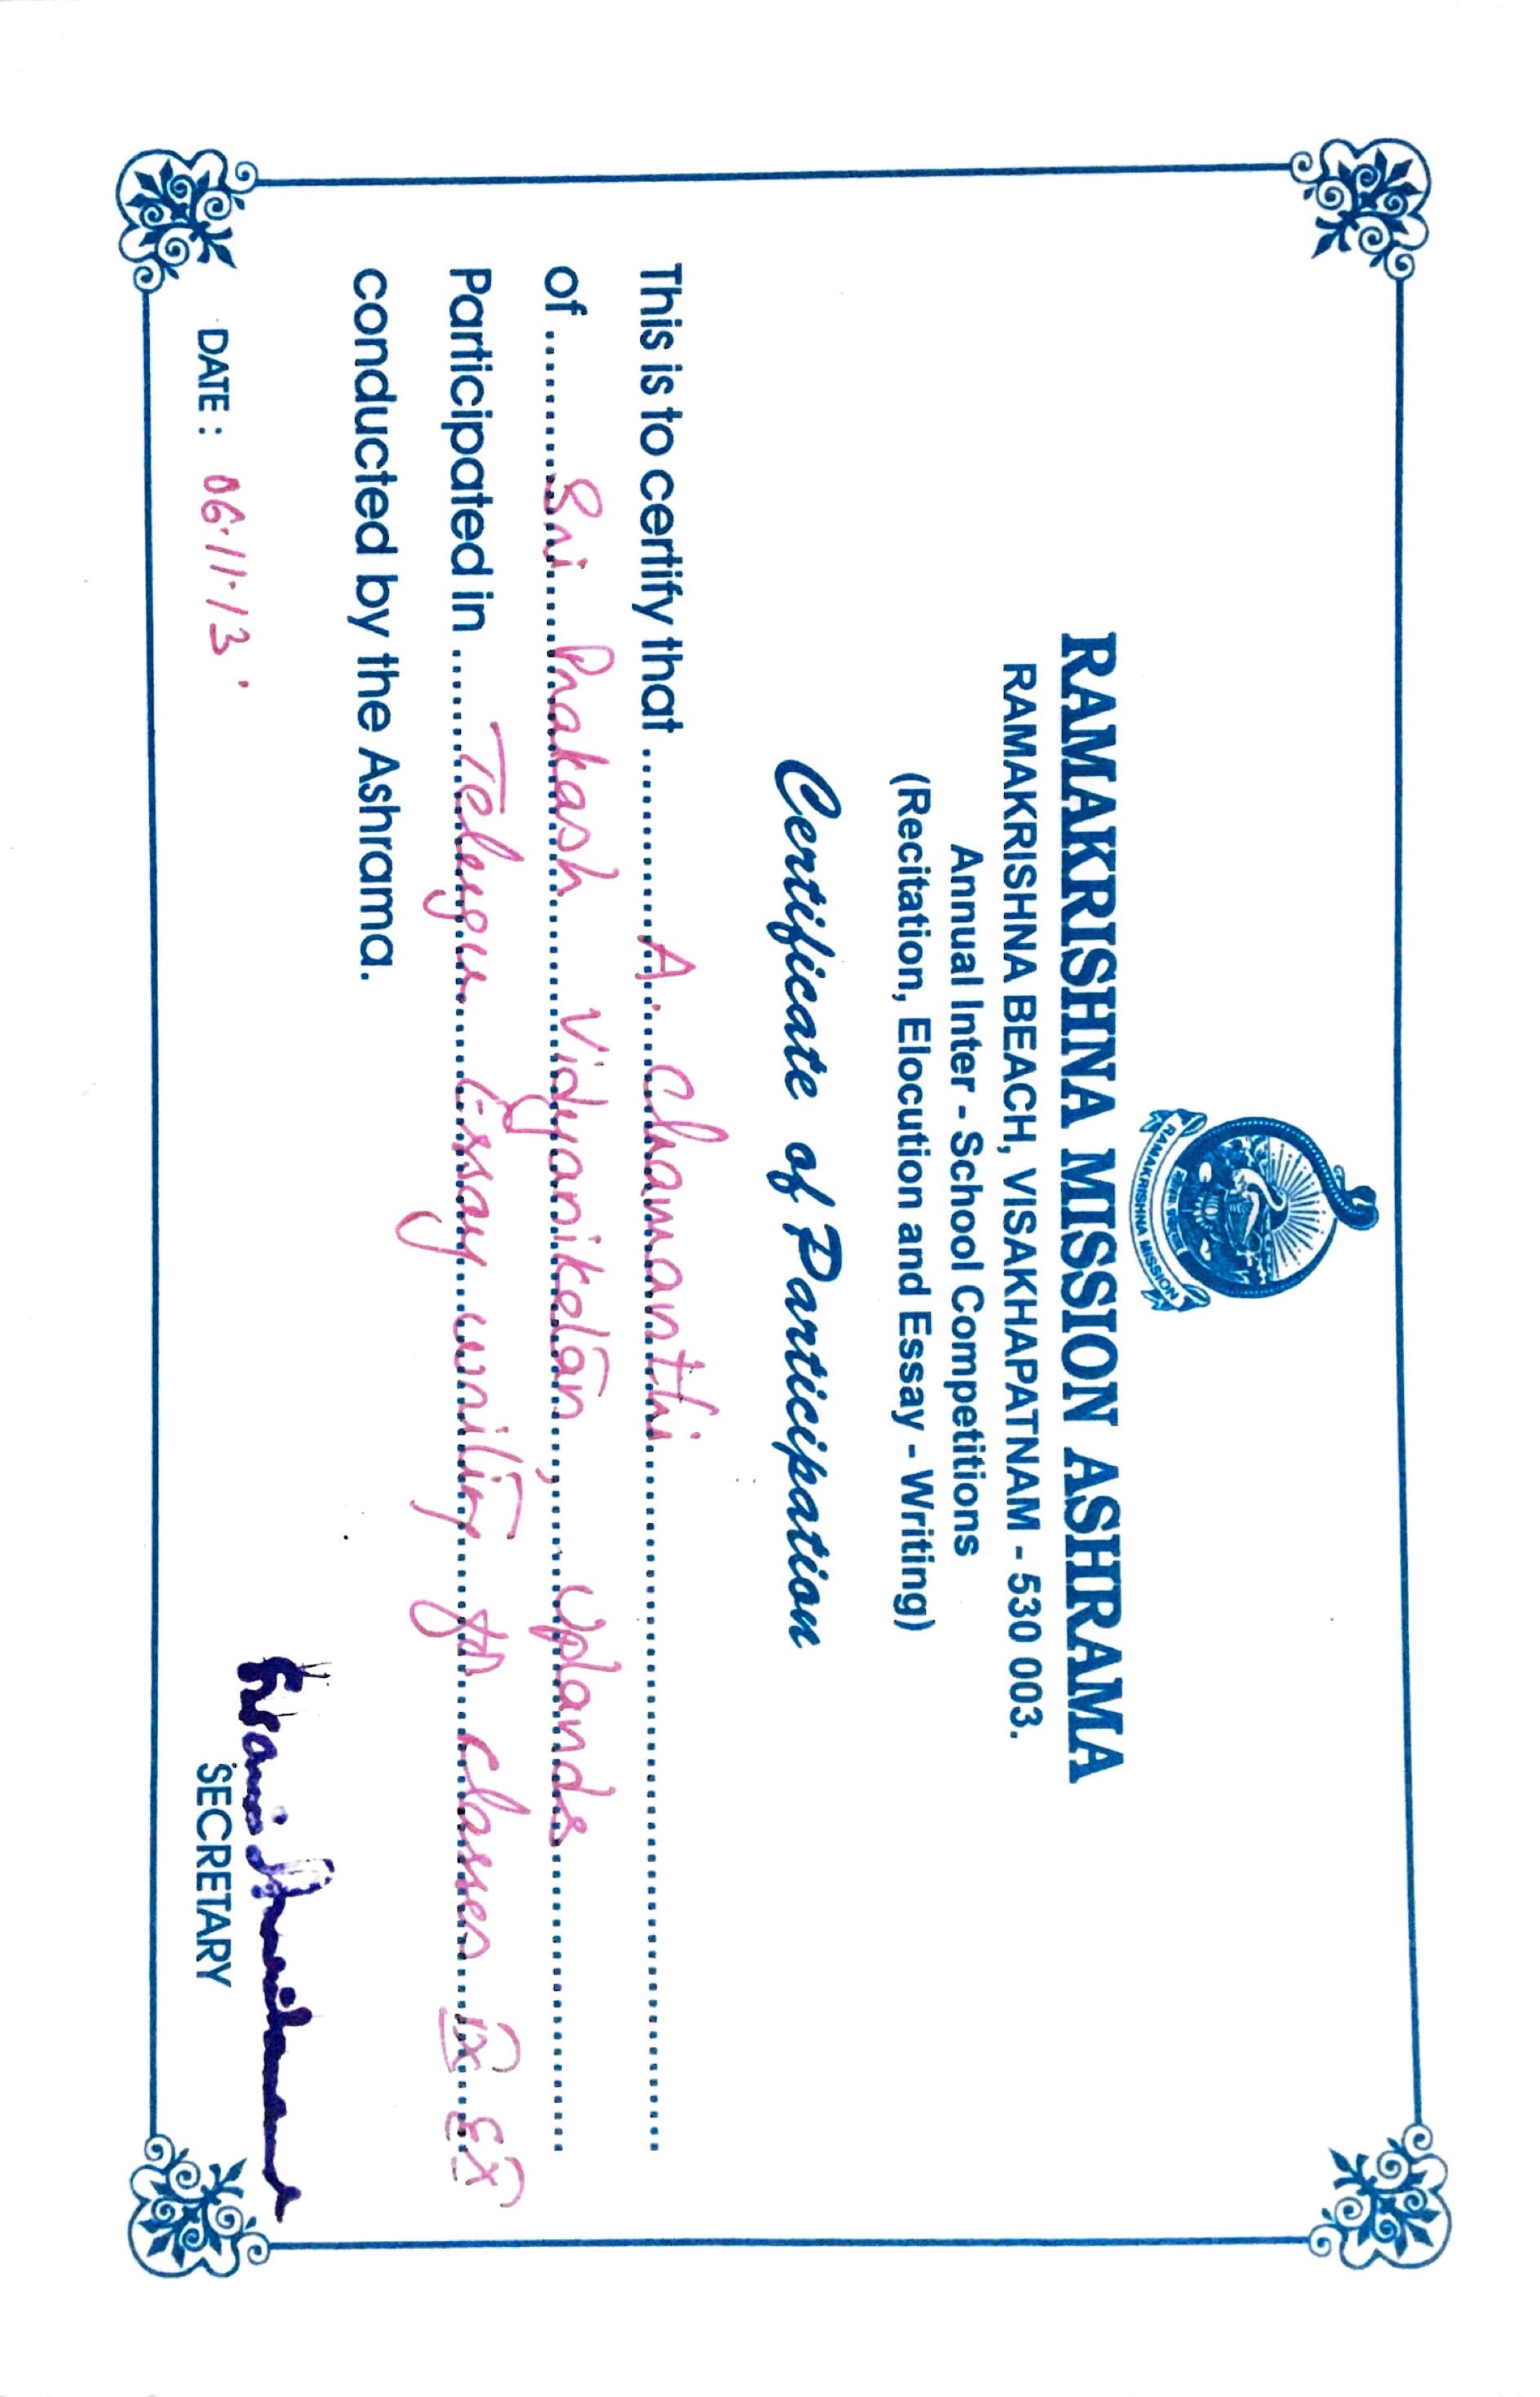 RAMAKRISHNA MISSION
RAMAKRISHNA MISSION ASHRAMA
RAMAKRISHNA BEACH, VISAKHAPATNAM - 530 003.
Annual Inter - School Competitions
(Recitation, Elocution and Essay - Writing)
Certificate of Participation
This is to certify that ............ A. Chamanthi ............
of ............ Sri Prakash Vidyaniketan, Uplands ............
Participated in ............ Telugu Essay writing for classes IX & X
conducted by the Ashrama.
DATE : 06.11.13.
SECRETARY